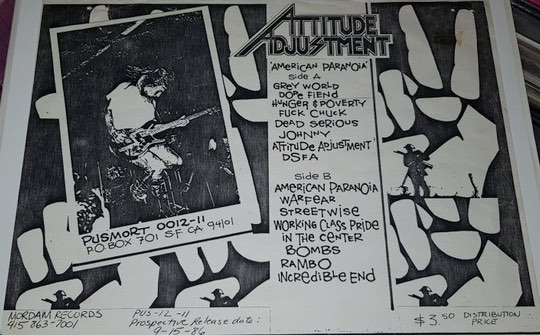 ATTITUDE
ADJUSTMENT
"AMERICAN PARANOIA"
SIDE A
GREY WORLD
DOPE FIEND
HUNGER & POVERTY
FUCK CHUCK
DEAD SERIOUS
JOHNNY
ATTITUDE ADJUSTMENT
DSFA
SIDE B
AMERICAN PARANOIA
WARFEAR
STREETWISE
WORKING CLASS PRIDE
IN THE CENTER
BOMBS
RAMBO
INCREDIBLE END
PUSMORT 0012-11
P.O. BOX 701 S.F. CA 94101
MORDAM RECORDS
415 863-7001
PUS-12-11
Prospective Release date:
9-15-86
$3.50 DISTRIBUTION
PRICE